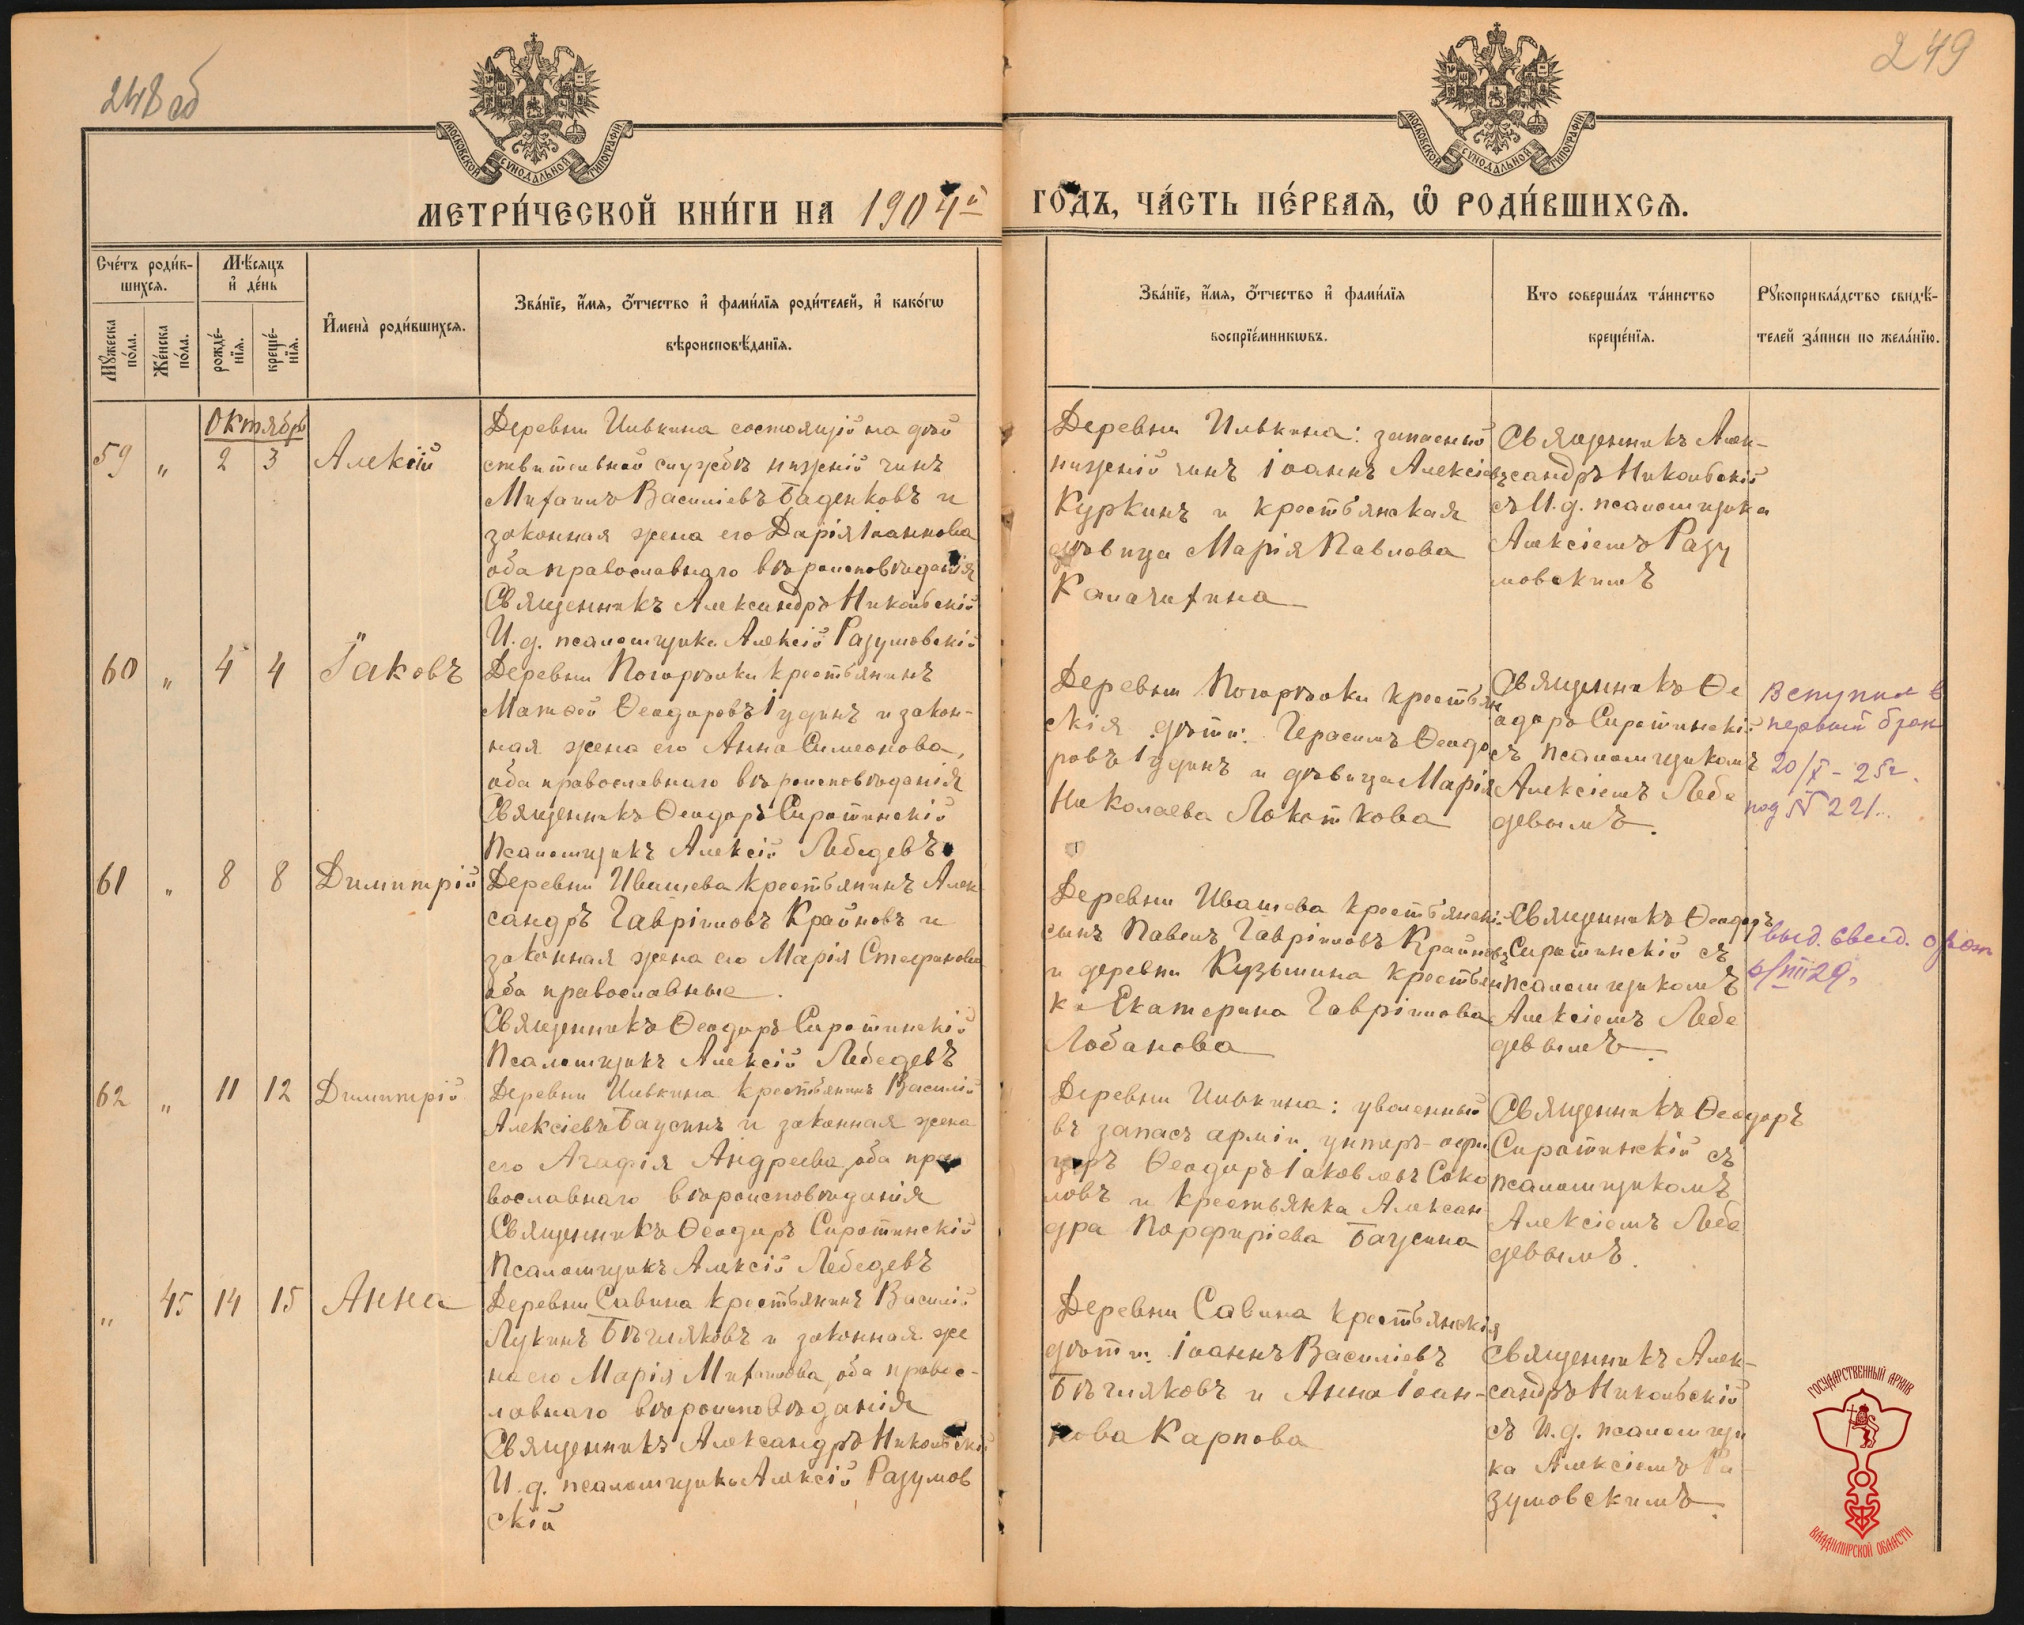 248 об
249
МОСКОВСКОЙ СУНОДАЛЬНОЙ ТИПОГРАФІИ
МОСКОВСКОЙ СУНОДАЛЬНОЙ ТИПОГРАФІИ
МЕТРИ́ЧЕСКОЙ КНИ́ГИ НА 1904й
ГОДЪ, ЧА́СТЬ ПЕ́РВАЯ, Ѡ РОДИ́ВШИХСЯ.
Сче́тъ роди́в-
шихся.
Мѣ́сяцъ
и де́нь
Му́жеска
по́ла.
Же́нска
по́ла.
рожде́-
нїя.
креще́-
нїя.
Имена̀ роди́вшихся.
Зва́нїе, и́мя, о́тчество и фами́лїя роди́телей, и како́гѡ
вѣроисповѣ́данїя.
Зва́нїе, и́мя, о́тчество и фами́лїя
воспрїе́мникѡвъ.
Кто соверша́лъ та́инство
креще́нїя.
Рукоприкла́дство свидѣ́-
телей за́писи по жела́нїю.
Октябрь
59 „ 2 3 Алексій
Деревни Илькина состоящій на дѣй
ствительной службѣ нижній чинъ
Михаилъ Василіевъ Баденковъ и
законная жена его Дарія Іоаннова
оба православнаго вѣроисповѣданія
Священникъ Александръ Никольскій
И. д. псаломщика Алексій Разумовскій
Деревни Илькина: запасный
нижній чинъ Іоаннъ Алексіевъ
Куркинъ и крестьянская
дѣвица Марія Павлова
Камачихина
Священникъ Алек-
сандръ Никольскій
съ И. д. псаломщика
Алексіемъ Разу
мовскимъ
60 „ 4 4 Іаковъ
Деревни Погорѣлки крестьянинъ
Матѳей Ѳеодоровъ Гудинъ и закон-
ная жена его Анна Симеонова,
оба православнаго вѣроисповѣданія
Священникъ Ѳеодоръ Сиротинскій
Псаломщикъ Алексій Лебедевъ
Деревни Погорѣлки крестьян
скія дѣти: Герасимъ Ѳеодо
ровъ Гудинъ и дѣвица Марія
Николаева Локоткова
Священникъ Ѳе
одоръ Сиротинскій
съ псаломщикомъ
Алексіемъ Лебе
девымъ.
Вступил в
первый брак
20/X - 25 г.
под № 221.
61 „ 8 8 Димитрій
Деревни Ивашева крестьянинъ Алек
сандръ Гавріиловъ Крайновъ и
законная жена его Марія Стефанова
оба православные.
Священникъ Ѳеодоръ Сиротинскій
Псаломщикъ Алексій Лебедевъ
Деревни Ивашева крестьянскій
сынъ Павелъ Гавріиловъ Крайновъ
и деревни Кузьмина крестьян
ка Екатерина Гавріилова
Лобанова
Священникъ Ѳеодоръ
Сиротинскій съ
псаломщикомъ
Алексіемъ Лебе
девымъ.
выд. свид.
62 „ 11 12 Димитрій
Деревни Илькина крестьянинъ Василій
Алексіевъ Баусинъ и законная жена
его Агафія Андреева, оба пра
вославнаго вѣроисповѣданія
Священникъ Ѳеодоръ Сиротинскій
Псаломщикъ Алексій Лебедевъ
Деревни Илькина: уволенный
въ запасъ арміи унтеръ-офи
церъ Ѳеодоръ Іаковлевъ Соко
ловъ и крестьянка Алексан
дра Порфиріева Баусина
Священникъ Ѳеодоръ
Сиротинскій съ
псаломщикомъ
Алексіемъ Лебе
девымъ.
„ 45 14 15 Анна
Деревни Савина крестьянинъ Василій
Лукинъ Бѣгляковъ и законная же
на его Марія Михаилова, оба правос-
лавнаго вѣроисповѣданія
Священникъ Александръ Никольскій
И. д. псаломщика Алексій Разумов
скій
Деревни Савина крестьянскія
дѣти: Іоаннъ Василіевъ
Бѣгляковъ и Анна Іоан-
нова Карпова
Священникъ Алек-
сандръ Никольскій
съ И. д. псаломщи
ка Алексіемъ Ра-
зумовскимъ.
ГОСУДАРСТВЕННЫЙ АРХИВ
ВЛАДИМИРСКОЙ ОБЛАСТИ